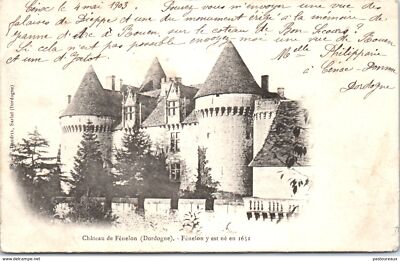 Cénac le 4 mai 1903. Pouvez-vous m'envoyer une vue des
falaises de Dieppe et une du monument érigé à la mémoire de
Jeanne d'Arc à Rouen sur le coteau de Bon Secours?
Si cela n'est pas possible envoyez moi une vue de Rouen
et d'
Melle Philipparie
à Cénac-Domme
Dordogne
Château de Fénelon (Dordogne). - Fénelon y est né en 1651
Sarlat (Dordogne)